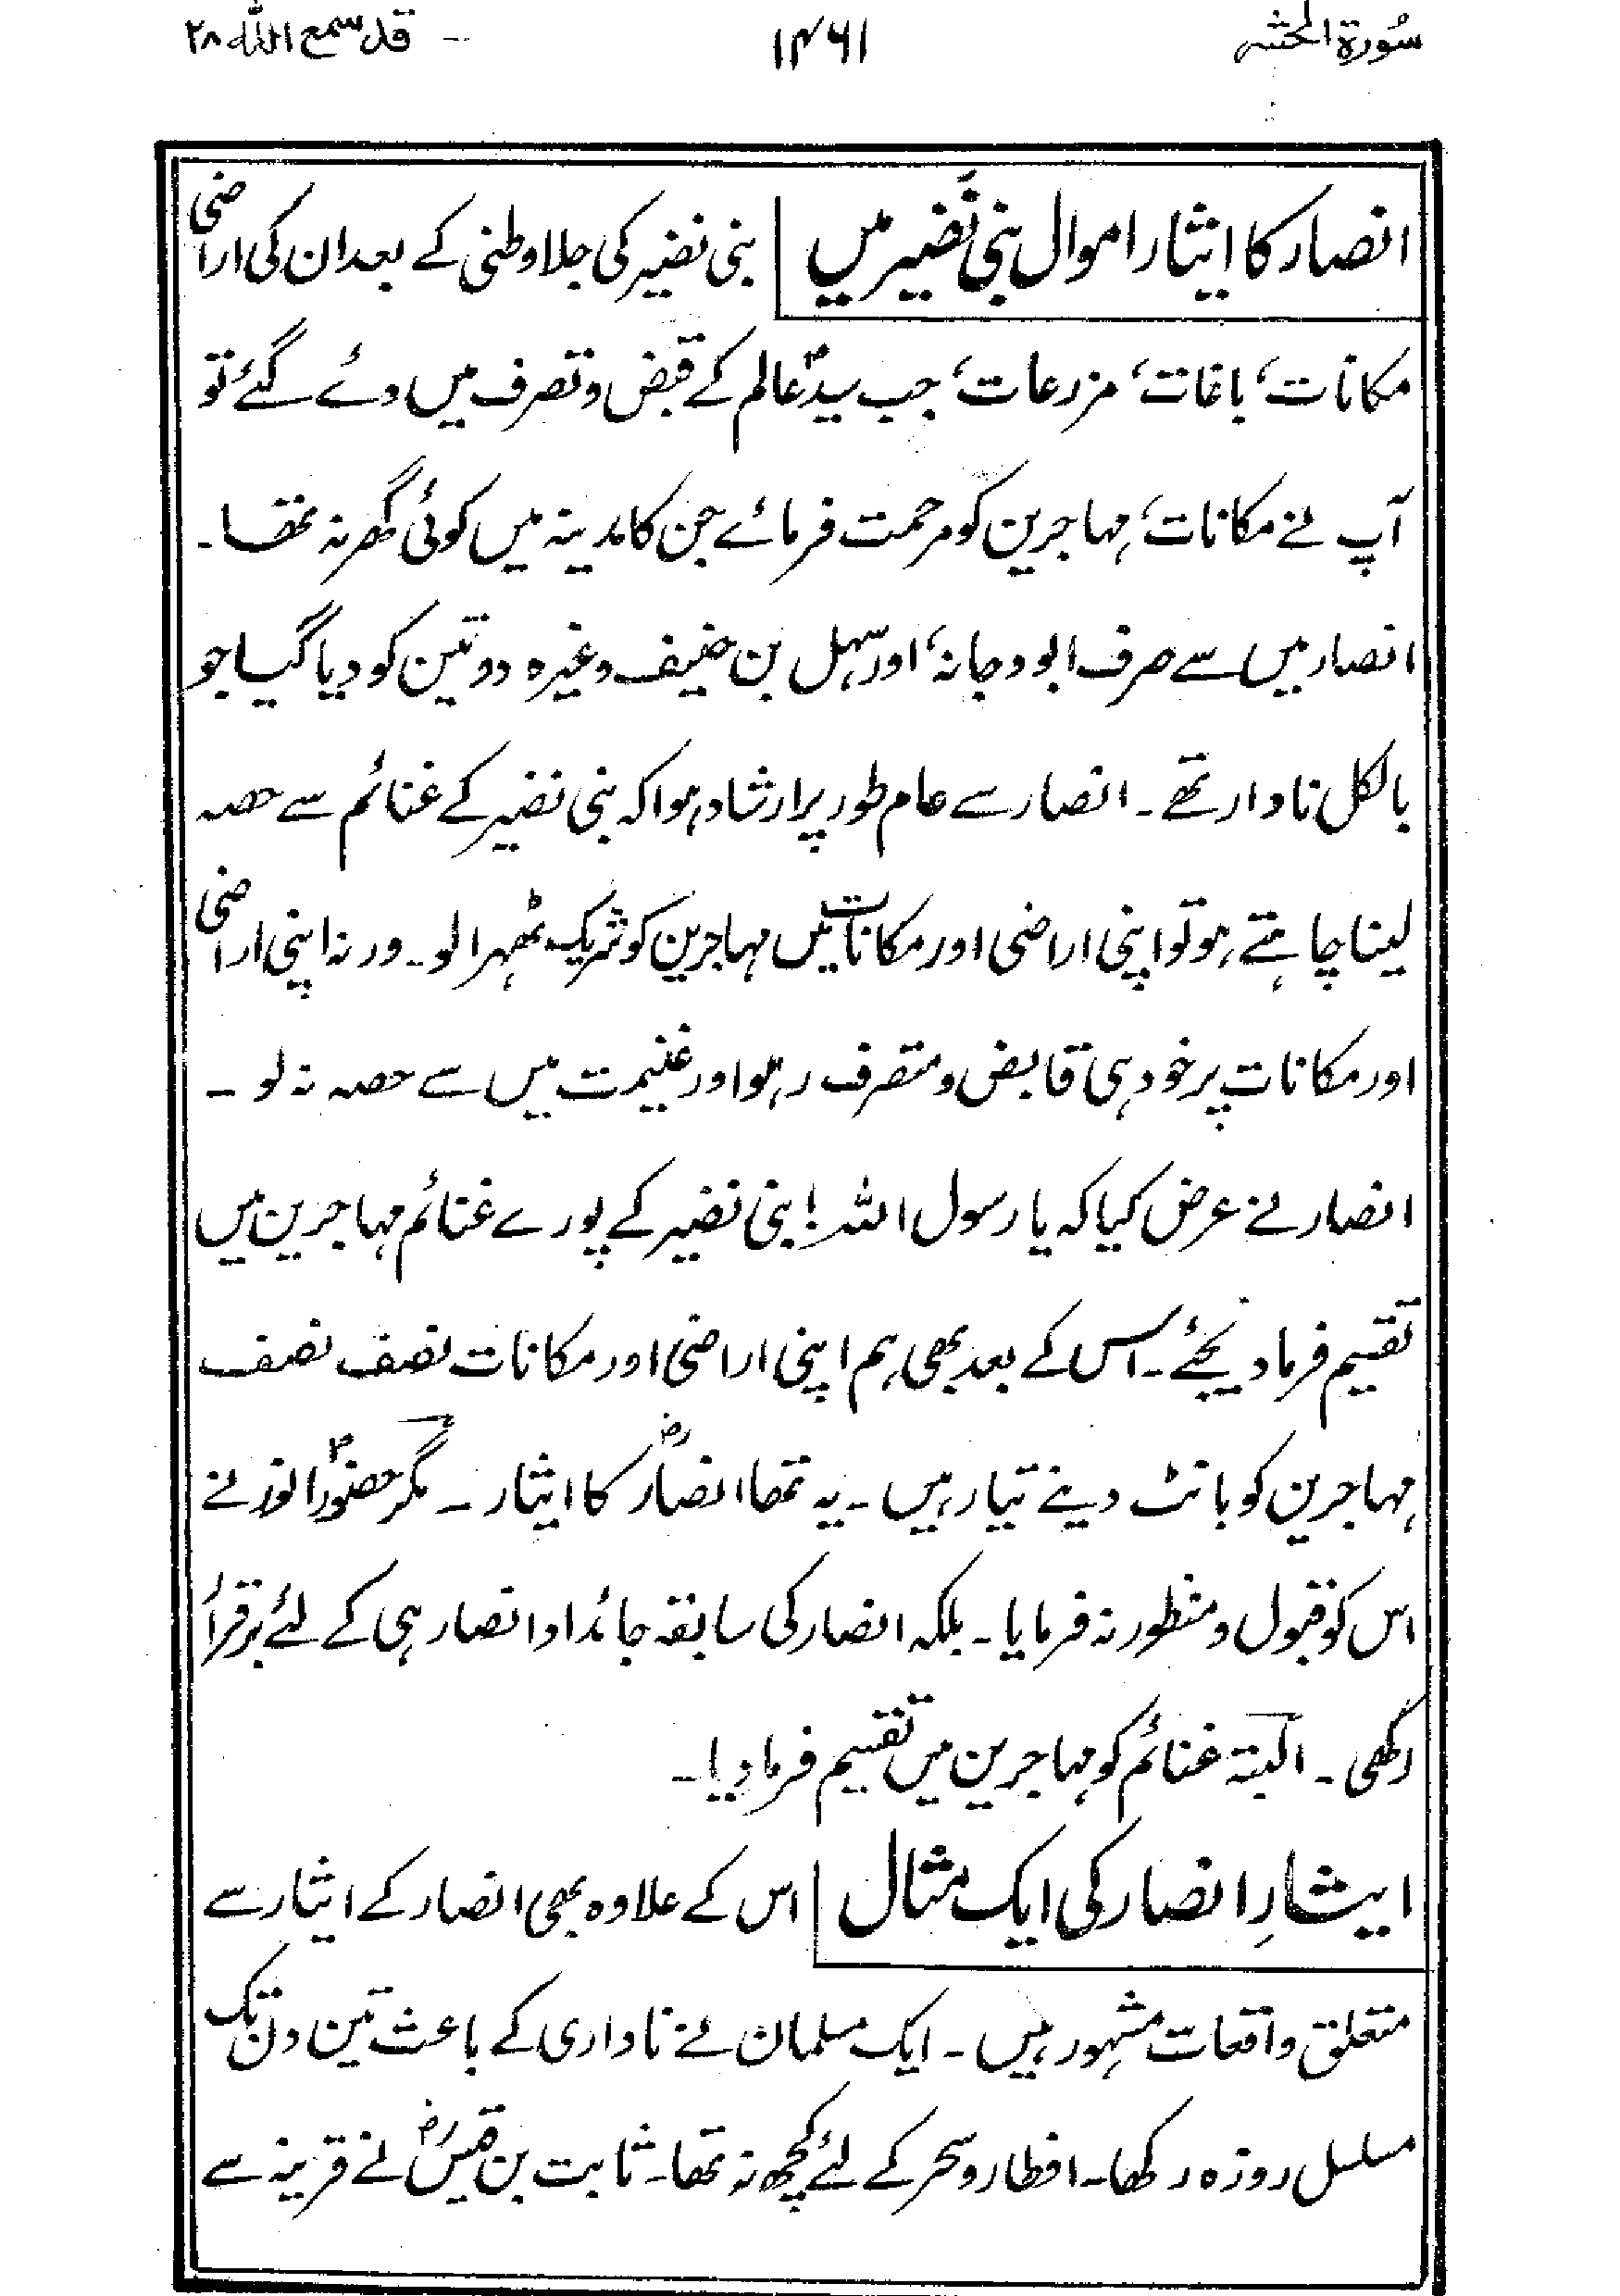 سُورۃ الحشر ۱۴۶۱ قد سمع اللہ ۲۸
انصار کا ایثار اموال بنی نَضیر میں بنی نضیر کی جلاوطنی کے بعد ان کی اراضی
مکانات، باغات، مزرعات، جب سیدؐ عالم کے قبض و تصرف میں دئے گئے تو
آپ نے مکانات، مہاجرین کو مرحمت فرمائے جن کا مدینہ میں کوئی گھر نہ تھا۔
انصار میں سے صرف ابودجانہ، اور سہل بن حنیف وغیرہ دو تین کو دیا گیا جو
بالکل نادار تھے۔ انصار سے عام طور پر ارشاد ہوا کہ بنی نضیر کے غنائم سے حصہ
لینا چاہتے ہو تو اپنی اراضی اور مکانات میں مہاجرین کو شریک ٹھہرا لو۔ ورنہ اپنی اراضی
اور مکانات پر خود ہی قابض و متصرف رہو اور غنیمت میں سے حصہ نہ لو۔
انصار نے عرض کیا کہ یا رسول اللہ! بنی نضیر کے پورے غنائم مہاجرین میں
تقسیم فرما دیجئے۔ اس کے بعد بھی ہم اپنی اراضی اور مکانات نصف نصف
مہاجرین کو بانٹ دینے تیار ہیں۔ یہ تھا انصارؓ کا ایثار۔ مگر حضورؐ انور نے
اس کو قبول و منظور نہ فرمایا۔ بلکہ انصار کی سابقہ جائداد انصار ہی کے لئے برقرار
رکھی۔ البتہ غنائم کو مہاجرین میں تقسیم فرما دیا۔
ایثارِ انصار کی ایک مثال اس کے علاوہ بھی انصار کے ایثار سے
متعلق واقعات مشہور ہیں۔ ایک مسلمان نے ناداری کے باعث تین دن تک
مسلسل روزہ رکھا۔ افطار و سحر کے لئے کچھ نہ تھا۔ ثابت بن قیسؓ نے قرینہ سے